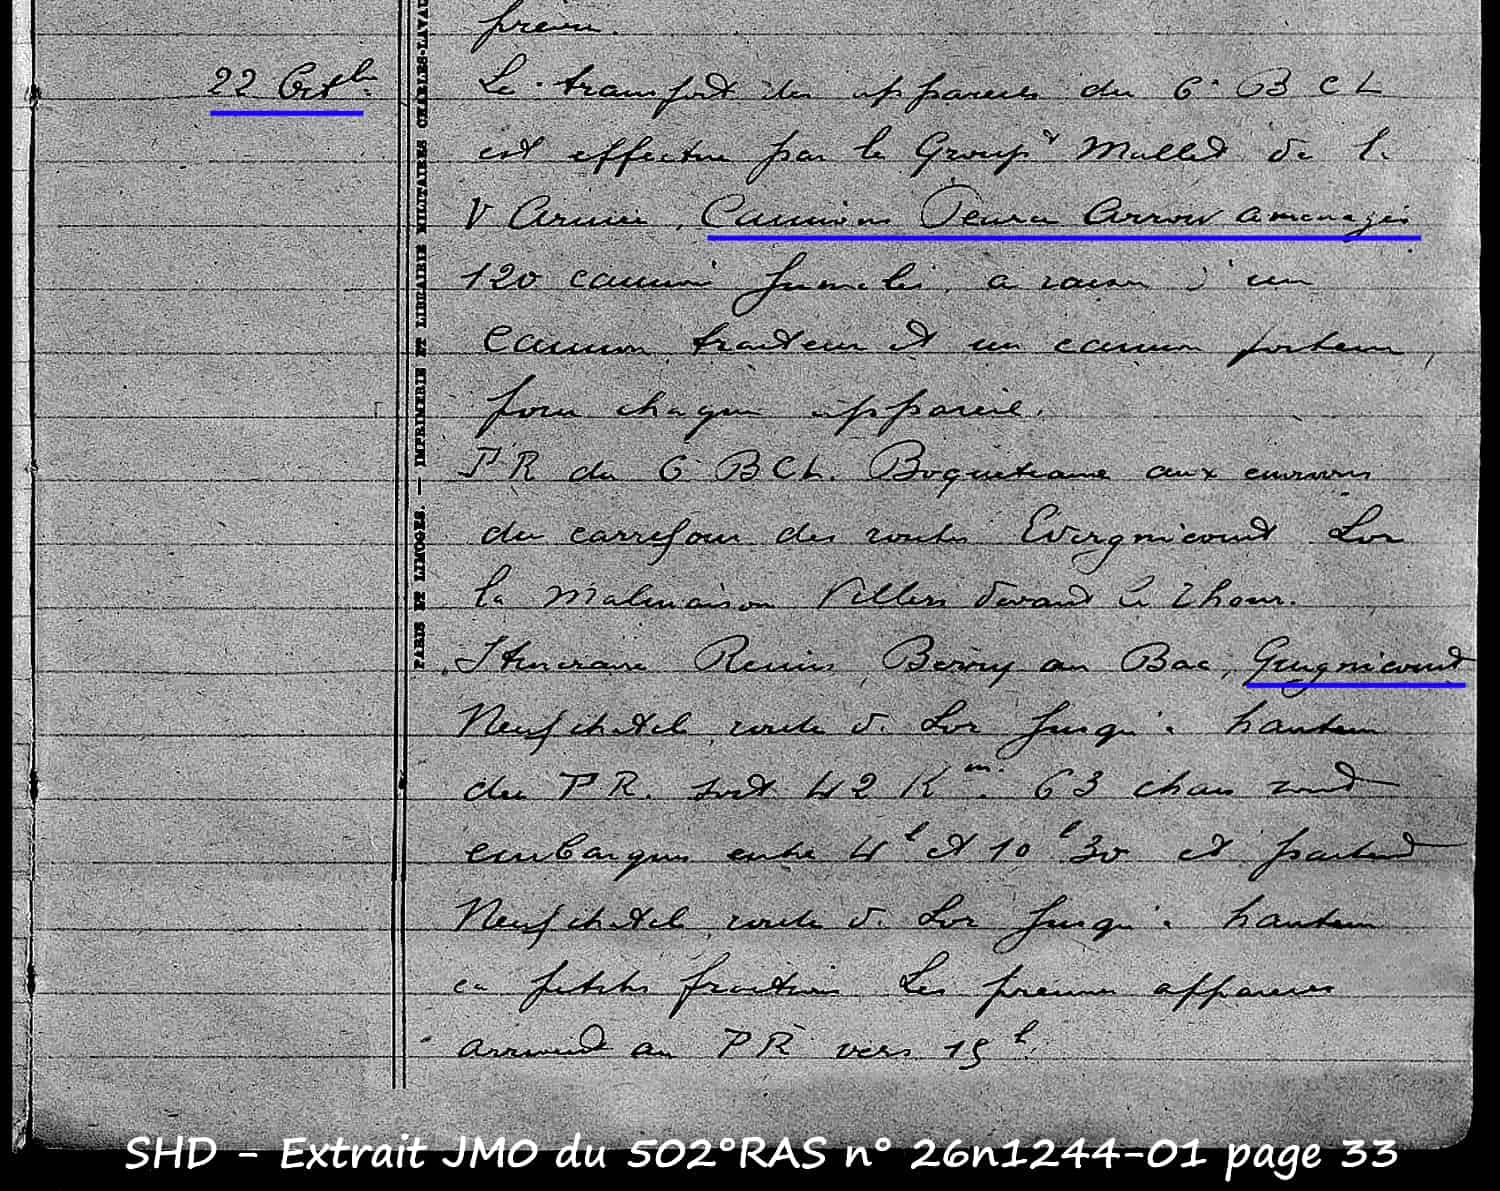 preuve.
22 Octbre
Le transport des appareils du 6e B C L
est effectué par le Groupt Mallet de la
V Armée, Camions Peirce Arrow amenagés
120 camions jumelés, a raison d'un
camion tracteur et un camion porteur,
pour chaque appareil.
P R du 6 B C L. Boqueteaux aux environs
du carrefour des routes Evergnicourt Lor
la Malmaison Villers devant le Thour.
Itineraire Reims, Berry au Bac, Guignicourt
Neufchatel, route de Lor jusqu'a hauteur
du P R. soit 42 Km. 63 chars sont
embarqués entre 4h et 10h30 et partent
Neufchatel, route de Lor jusqu'a hauteur
en petites fractions Les premiers appareils
arrivent au P R vers 15h.
PARIS ET LIMOGES. — IMPRIMERIE ET LIBRAIRIE MILITAIRES CHARLES-LAVAU
SHD - Extrait JMO du 502°RAS n° 26n1244-01 page 33